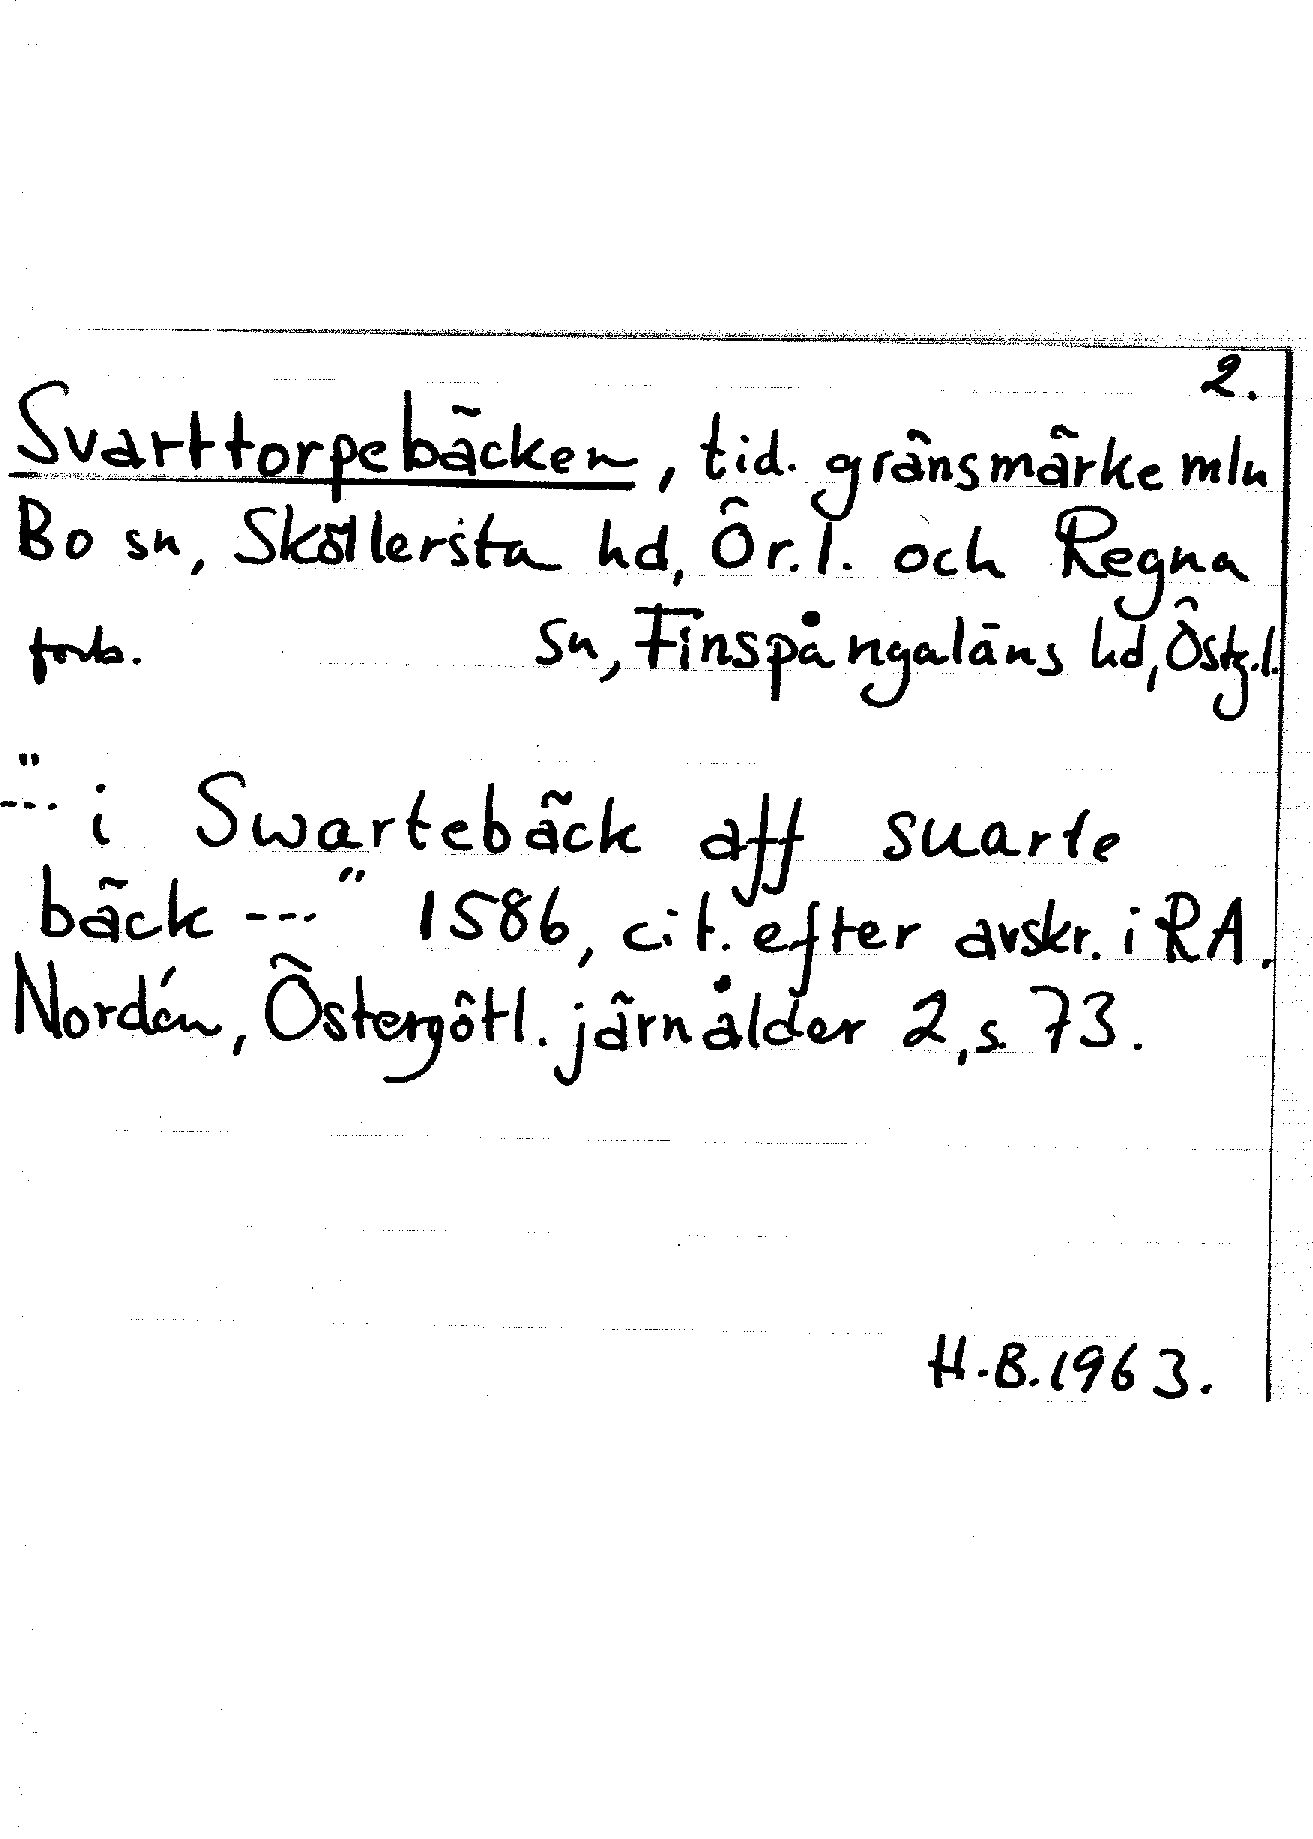 2.
Svarttorpebäcken, tid. gränsmärke mln
Bo sn, Sköllersta hd, Ör. l. och Regna
forts. sn, Finspångaläns hd, Östg. l.
"--- i Swartebäck aff suarte
bäck ---" 1586, cit. efter avskr. i RA.
Nordén, Östergötl. järnålder 2, s. 73.
H.B. 1963.